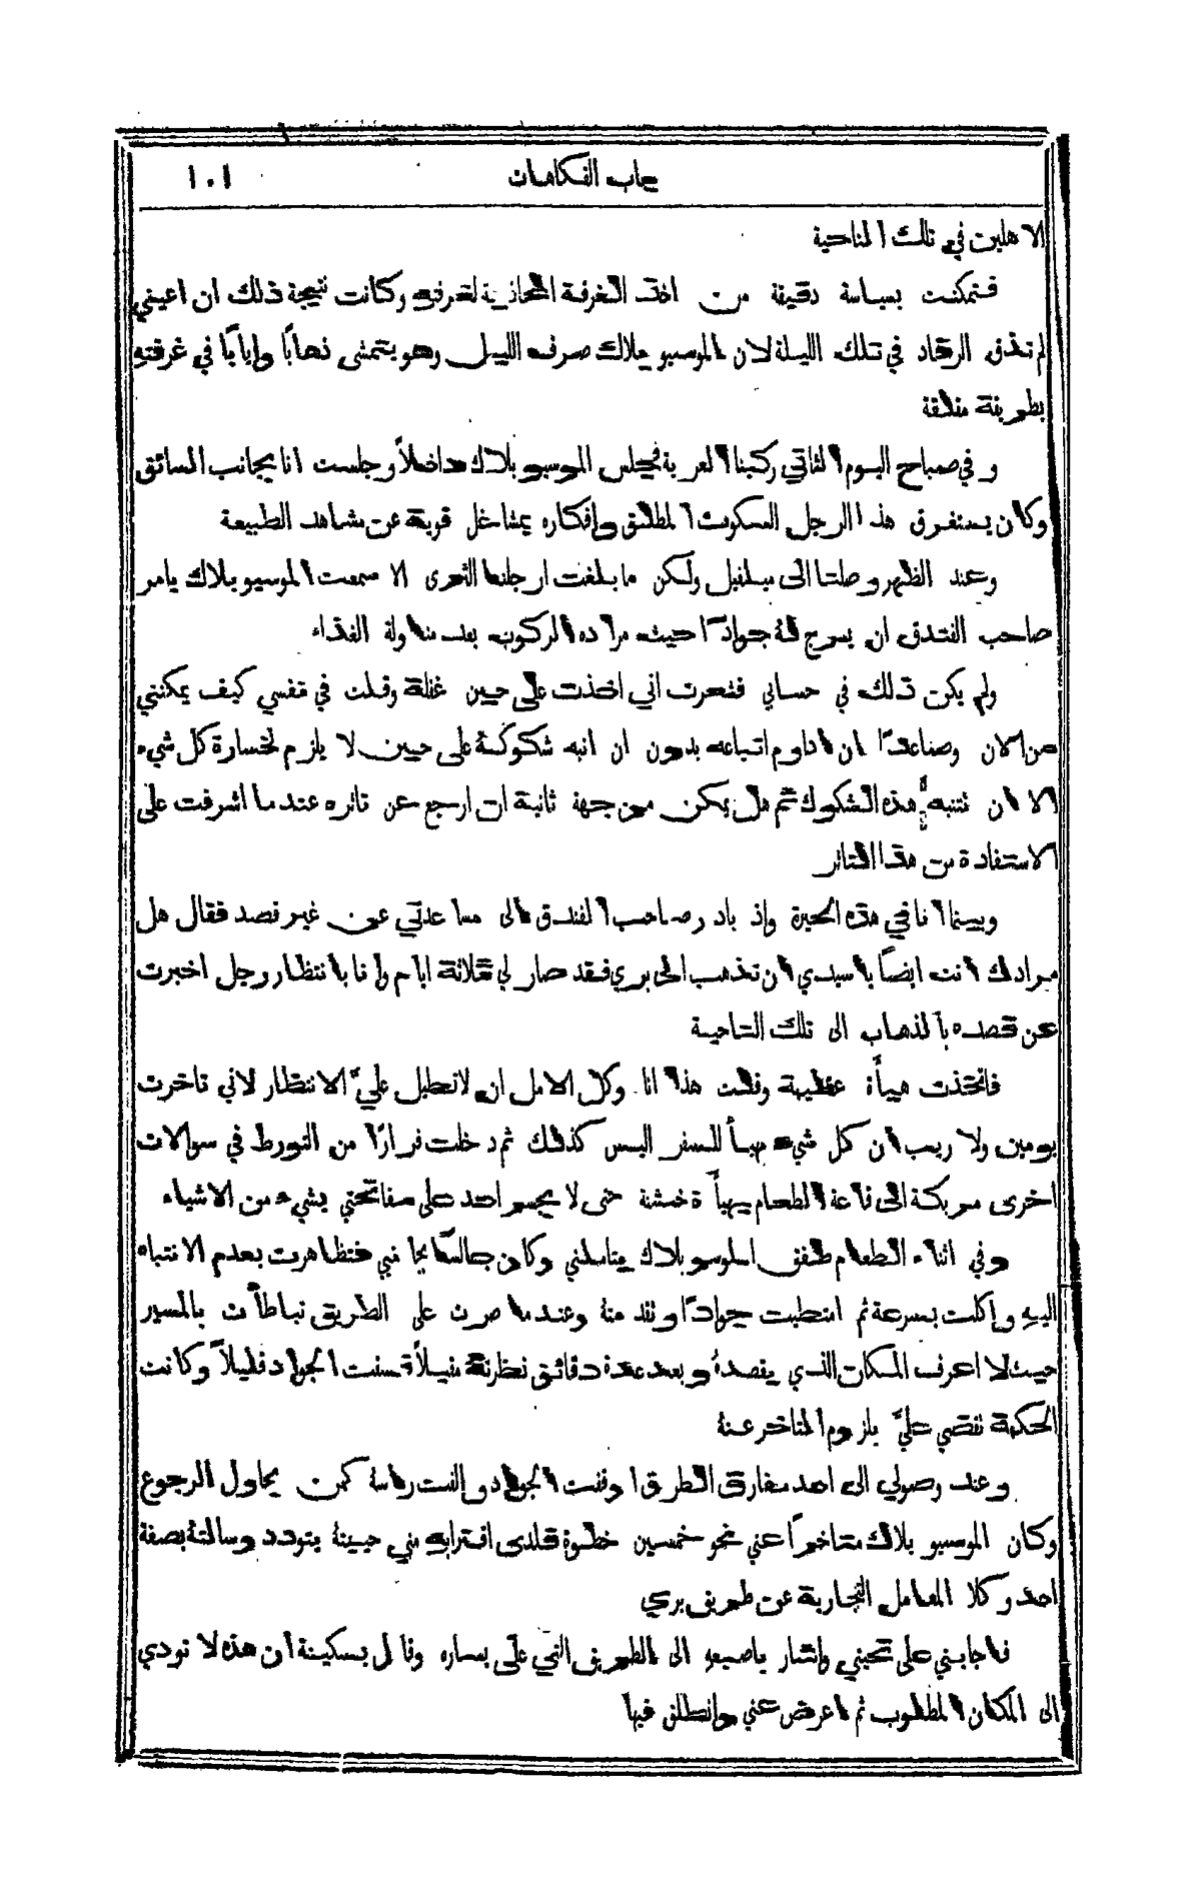 باب الفكاهات ١٠١
الاهلين في تلك الناحية
فتمكنت بسياسة دقيقة من اخذ الغرفة المحاذية لغرفته وكانت نتيجة ذلك ان اعيني
لم تذق الرقاد في تلك الليلة لان الموسيو بلاك صرف الليل وهو يتمشى ذهابًا وايابًا في غرفته
بطريقة مقلقة
وفي صباح اليوم الثاني ركبنا العربة فجلس الموسيو بلاك داخلاً وجلست انا بجانب السائق
وكان يستغرق هذا الرجل السكوت المطلق وافكاره بمشاغل قوية عن مشاهد الطبيعة
وعند الظهر وصلنا الى ميلفيل ولكن ما بلغت ارجلنا الثرى الا سمعت الموسيو بلاك يامر
صاحب الفندق ان يسرج له جوادًا حيث مراده الركوب بعد مناولة الغذاء
ولم يكن ذلك في حسابي فشعرت اني اخذت على حين غفلة وقلت في نفسي كيف يمكنني
من الان وصاعدًا ان اداوم اتباعه بدون ان انبه شكوكه على حين لا يلزم لخسارة كل شيء
الا ان تتنبه هذه الشكوك ثم هل يمكن من جهة ثانية ان ارجع عن تاثره عندما اشرفت على
الاستفادة من هذا التاثر
وبينما انا في هذه الحيرة واذ بادر صاحب الفندق الى مساعدتي عن غير قصد فقال هل
مرادك انت ايضًا يا سيدي ان تذهب الى بري فقد صار لي ثلاثة ايام وانا بانتظار رجل اخبرت
عن قصده بالذهاب الى تلك الناحية
فاتخذت هيأة عظيمة وقلت هذا انا وكل الامل ان لا تطيل عليّ الانتظار لاني تاخرت
يومين ولا ريب ان كل شيء مهيأ للسفر اليس كذلك ثم دخلت فرارًا من التورط في سوالات
اخرى مربكة الى قاعة الطعام بهيأة خشنة حتى لا يجسر احد على مفاتحتي بشيء من الاشياء
وفي اثناء الطعام طفق الموسيو بلاك يتاملني وكان جالسًا بجانبي فتظاهرت بعدم الانتباه
اليه واكلت بسرعة ثم امتطيت جوادًا وتقدمته وعندما صرت على الطريق تباطأت بالمسير
حيث لا اعرف المكان الذي يقصده وبعد عدة دقائق نظرته مقبلاً فسقت الجواد قليلاً وكانت
الحكمة تقضي عليّ بلزوم التاخر عنه
وعند وصولي الى احد مفارق الطرق اوقفت الجواد والفت راسه كمن يحاول الرجوع
وكان الموسيو بلاك متاخرًا عني نحو خمسين خطوة فلدى اقترابه مني حييته بتودد وسالته بصفة
احد وكلا المعامل التجارية عن طريق بري
فاجابني على تحيتي واشار باصبعه الى الطريق التي على يساره وقال بسكينة ان هذه لا تودي
الى المكان المطلوب ثم اعرض عني وانطلق فيها